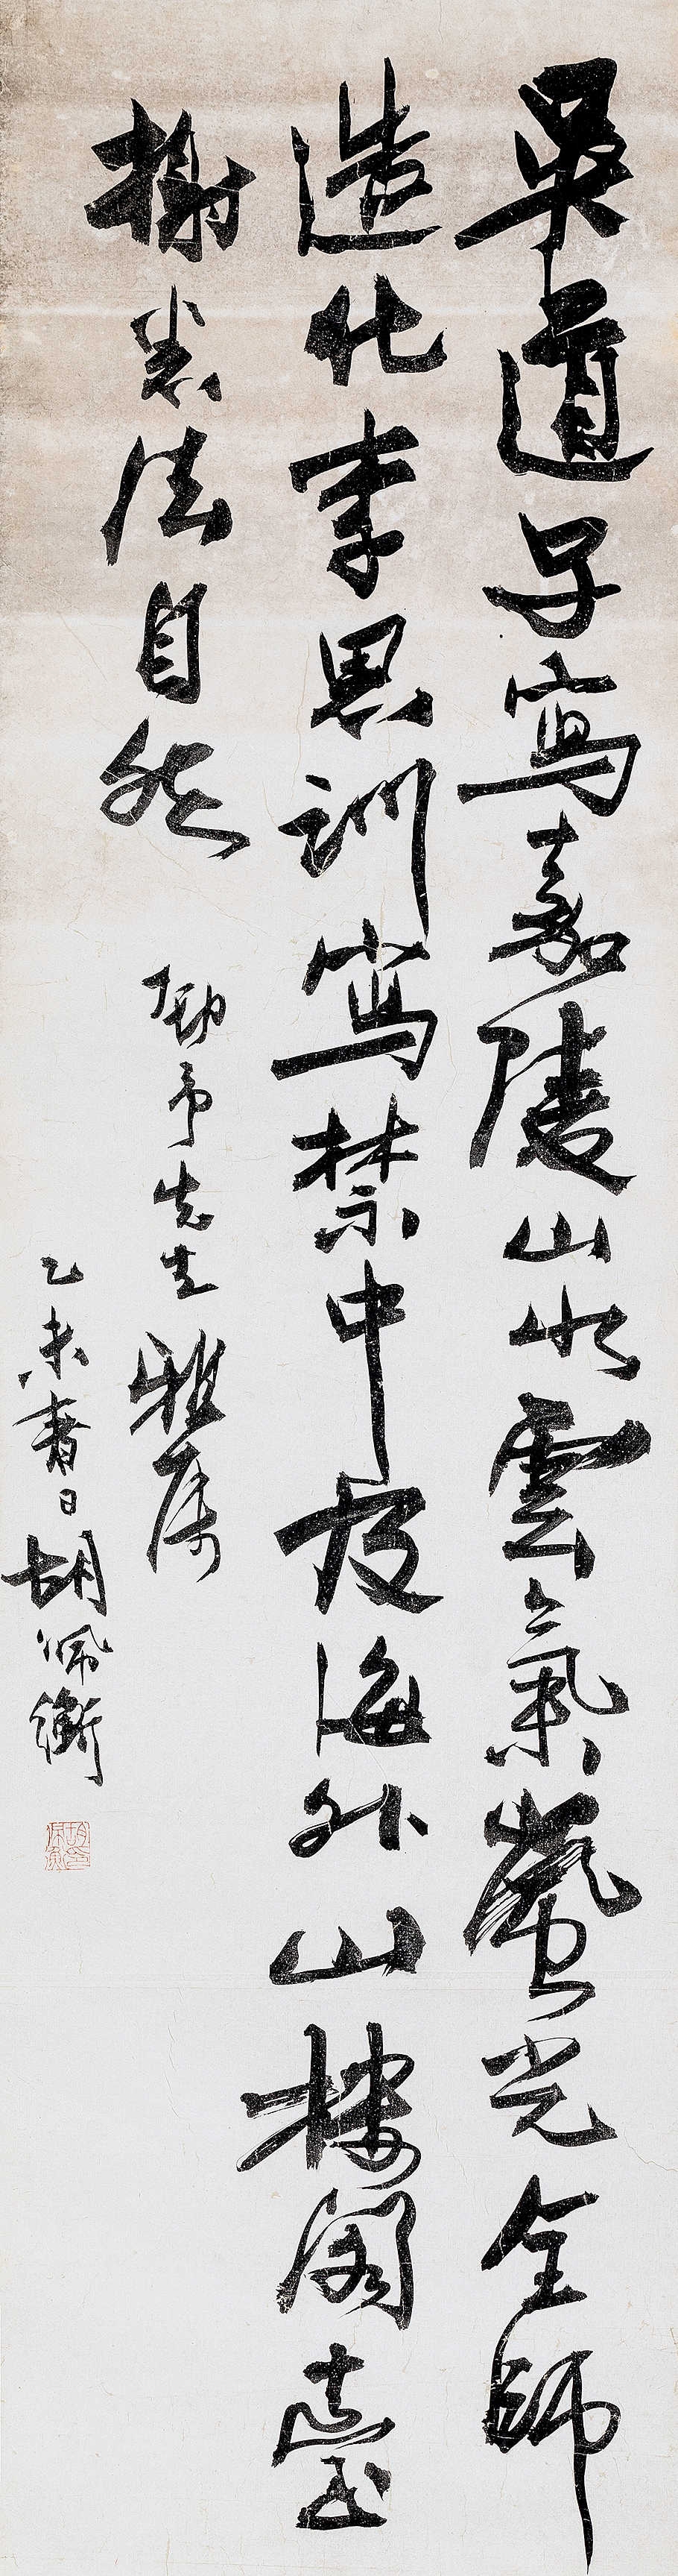 吳道子寫嘉陵山水雲氣嵐光全師
造化李思訓寫禁中及海外山樓閣臺
榭悉法自然
勁予先生雅屬
乙未春日胡佩衡